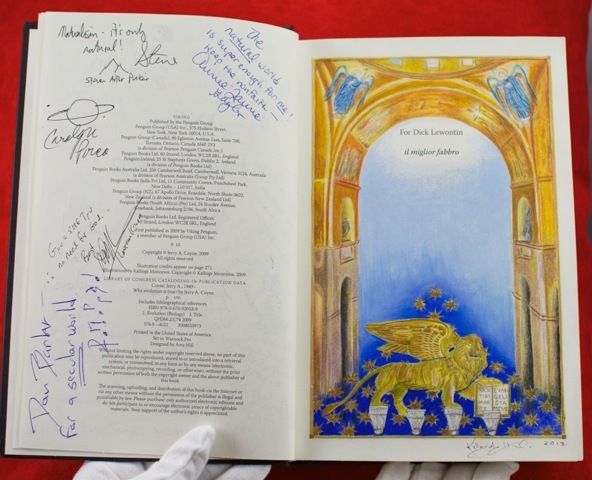 Naturalism - it's only
natural!
The
natural world
is super enough for me!
Keep the nonfaith—
Annie Laurie
Gaylor
Carolyn
Porco
no need for one.
Dan Barker
For a secular world
VIKING
Published by the Penguin Group
Penguin Group (USA) Inc., 375 Hudson Street,
New York, New York 10014, U.S.A.
Penguin Group (Canada), 90 Eglinton Avenue East, Suite 700,
Toronto, Ontario, Canada M4P 2Y3
(a division of Pearson Penguin Canada Inc.)
Penguin Books Ltd, 80 Strand, London WC2R 0RL, England
Penguin Ireland, 25 St. Stephen's Green, Dublin 2, Ireland
(a division of Penguin Books Ltd)
Penguin Books Australia Ltd, 250 Camberwell Road, Camberwell, Victoria 3124, Australia
(a division of Pearson Australia Group Pty Ltd)
Penguin Books India Pvt Ltd, 11 Community Centre, Panchsheel Park,
New Delhi – 110 017, India
Penguin Group (NZ), 67 Apollo Drive, Rosedale, North Shore 0632,
New Zealand (a division of Pearson New Zealand Ltd)
Penguin Books (South Africa) (Pty) Ltd, 24 Sturdee Avenue,
Rosebank, Johannesburg 2196, South Africa
Penguin Books Ltd, Registered Offices:
80 Strand, London WC2R 0RL, England
First published in 2009 by Viking Penguin,
a member of Penguin Group (USA) Inc.
Copyright © Jerry A. Coyne, 2009
All rights reserved
Illustration credits appear on page 271.
Illustrations by Kalliopi Monoyios. Copyright © Kalliopi Monoyios, 2009.
LIBRARY OF CONGRESS CATALOGING IN PUBLICATION DATA
Coyne, Jerry A., 1949–
Why evolution is true / by Jerry A. Coyne.
p. cm.
Includes bibliographical references.
1. Evolution (Biology) I. Title.
QH366.2.C74 2009
Printed in the United States of America
Set in Warnock Pro
Designed by Amy Hill
Without limiting the rights under copyright reserved above, no part of this
publication may be reproduced, stored in or introduced into a retrieval
system, or transmitted, in any form or by any means (electronic,
mechanical, photocopying, recording, or otherwise), without the prior
written permission of both the copyright owner and the above publisher of
this book.
The scanning, uploading, and distribution of this book via the Internet or
via any other means without the permission of the publisher is illegal and
punishable by law. Please purchase only authorized electronic editions and
do not participate in or encourage electronic piracy of copyrightable
materials. Your support of the author's rights is appreciated.
For Dick Lewontin
il miglior fabbro
2013